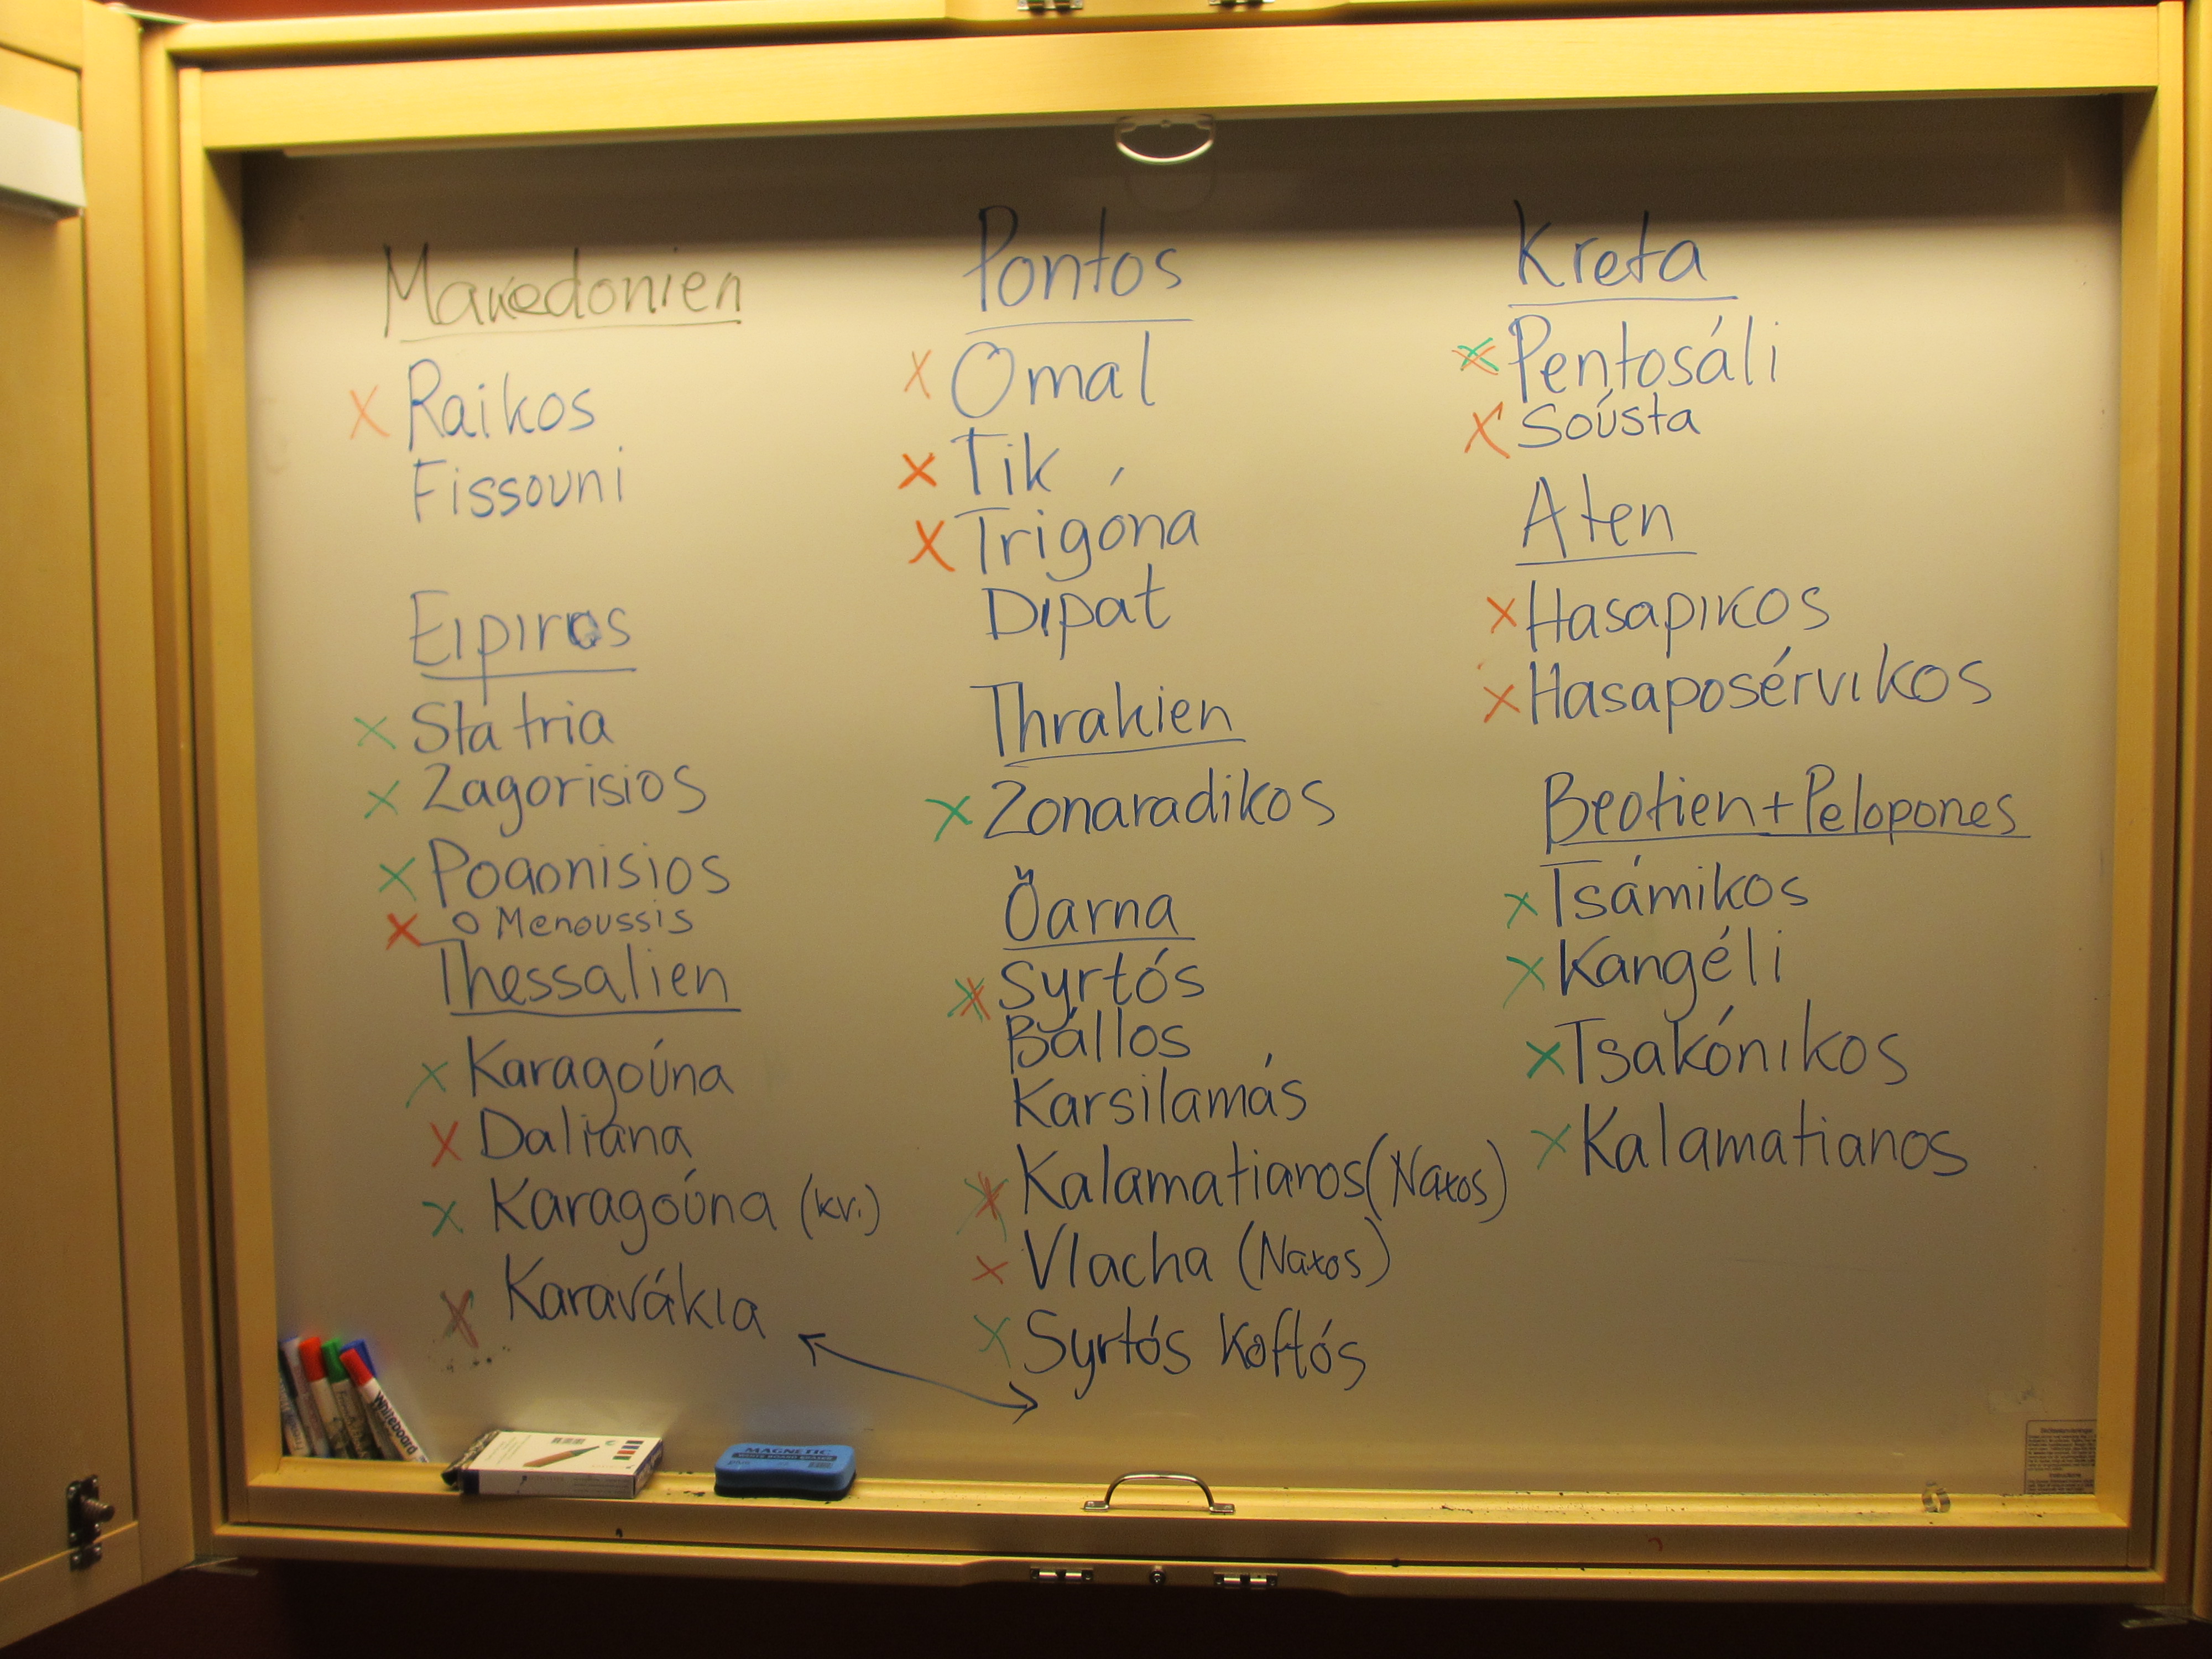 Makedonien
x Raikos
Fissouni
Eipiros
x Sta tria
x Zagorisios
x Pogonisios
x O Menoussis
Thessalien
x Karagoúna
x Daliána
x Karagoúna (kv.)
x Karavákia
Pontos
x Omal
x Tik
x Trigóna
Dipat
Thrakien
x Zonaradikos
Öarna
x Syrtós
Bállos
Karsilamás
x Kalamatianos (Naxos)
x Vlacha (Naxos)
x Syrtós Koftós
Kreta
x Pentosáli
x Soústa
Aten
x Hasapikos
x Hasaposérvikos
Beotien + Pelopones
x Tsámikos
x Kangéli
x Tsakónikos
x Kalamatianos
Whiteboard
MAGNETIC